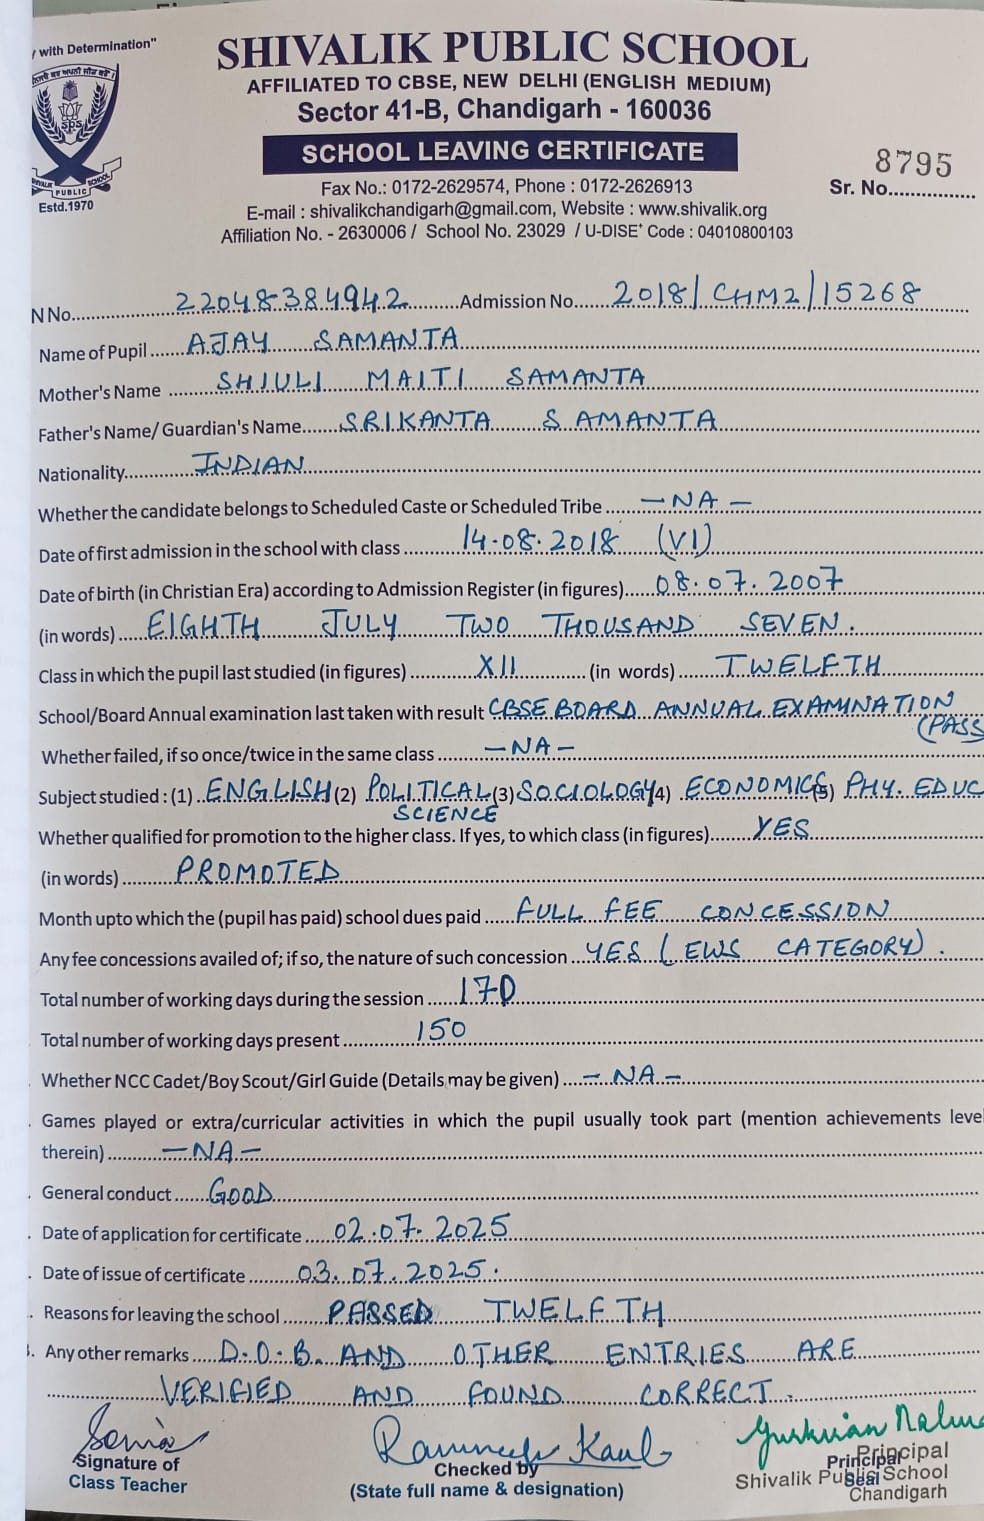 y with Determination"
SHIVALIK PUBLIC SCHOOL
AFFILIATED TO CBSE, NEW DELHI (ENGLISH MEDIUM)
Sector 41-B, Chandigarh - 160036
SCHOOL LEAVING CERTIFICATE
sps
PUBLIC SCHOOL
Estd.1970
8795
Sr. No..............
Fax No.: 0172-2629574, Phone : 0172-2626913
E-mail : shivalikchandigarh@gmail.com, Website : www.shivalik.org
Affiliation No. - 2630006 / School No. 23029 / U-DISE+ Code : 04010800103
N No. 22048384942 Admission No. 2018/CHM2/15268
Name of Pupil AJAY SAMANTA
Mother's Name SHIULI MAITI SAMANTA
Father's Name/ Guardian's Name SRIKANTA SAMANTA
Nationality INDIAN
Whether the candidate belongs to Scheduled Caste or Scheduled Tribe -NA-
Date of first admission in the school with class 14.08.2018 (VI)
Date of birth (in Christian Era) according to Admission Register (in figures) 08.07.2007
(in words) EIGHTH JULY TWO THOUSAND SEVEN.
Class in which the pupil last studied (in figures) XII (in words) TWELFTH
School/Board Annual examination last taken with result CBSE BOARD ANNUAL EXAMINATION
(PASS
Whether failed, if so once/twice in the same class -NA-
Subject studied : (1) ENGLISH (2) POLITICAL (3) SOCIOLOGY (4) ECONOMICS (5) PHY. EDUC
SCIENCE
Whether qualified for promotion to the higher class. If yes, to which class (in figures) YES
(in words) PROMOTED
Month upto which the (pupil has paid) school dues paid FULL FEE CONCESSION
Any fee concessions availed of; if so, the nature of such concession YES (EWS CATEGORY).
Total number of working days during the session 170
Total number of working days present 150
Whether NCC Cadet/Boy Scout/Girl Guide (Details may be given) -NA-
Games played or extra/curricular activities in which the pupil usually took part (mention achievements level
therein) -NA-
General conduct GOOD
Date of application for certificate 02.07.2025
Date of issue of certificate 03.07.2025.
Reasons for leaving the school PASSED TWELFTH
Any other remarks D.O.B. AND OTHER ENTRIES ARE
VERIFIED AND FOUND CORRECT.
Signature of
Class Teacher
Kaul
Checked by
(State full name & designation)
Principal
Seal
Principal
Shivalik Public School
Chandigarh